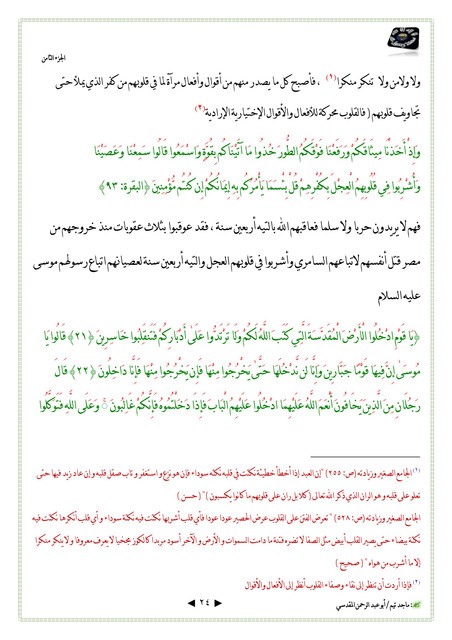 الجزء الثامن
ولا ولامن ولا تنكر منكرا(١) ، فأصبح كل ما يصدر منهم من أقوال وأفعال مرآة لما في قلوبهم من كفر الذي يملأ حتى
تجاويف قلوبهم ( فالقلوب محركة للأفعال والأقوال الإختيارية الإرادية(٢)
وَإِذْ أَخَذْنَا مِيثَاقَكُمْ وَرَفَعْنَا فَوْقَكُمُ الطُّورَ خُذُوا مَا آتَيْنَاكُم بِقُوَّةٍ وَاسْمَعُوا قَالُوا سَمِعْنَا وَعَصَيْنَا
وَأُشْرِبُوا فِي قُلُوبِهِمُ الْعِجْلَ بِكُفْرِهِمْ قُلْ بِئْسَمَا يَأْمُرُكُم بِهِ إِيمَانُكُمْ إِن كُنتُم مُّؤْمِنِينَ ﴿البقرة: ٩٣﴾
فهم لا يريدون حربا ولا سلما فعاقبهم الله بالتيه أربعين سنة ، فقد عوقبوا بثلاث عقوبات منذ خروجهم من
مصر قتل أنفسهم لاتباعهم السامري وأشربوا في قلوبهم العجل والتيه أربعين سنة لعصيانهم اتباع رسولهم موسى
عليه السلام
﴿يَا قَوْمِ ادْخُلُوا الْأَرْضَ الْمُقَدَّسَةَ الَّتِي كَتَبَ اللَّهُ لَكُمْ وَلَا تَرْتَدُّوا عَلَىٰ أَدْبَارِكُمْ فَتَنقَلِبُوا خَاسِرِينَ ﴿٢١﴾ قَالُوا يَا
مُوسَىٰ إِنَّ فِيهَا قَوْمًا جَبَّارِينَ وَإِنَّا لَن نَّدْخُلَهَا حَتَّىٰ يَخْرُجُوا مِنْهَا فَإِن يَخْرُجُوا مِنْهَا فَإِنَّا دَاخِلُونَ ﴿٢٢﴾ قَالَ
رَجُلَانِ مِنَ الَّذِينَ يَخَافُونَ أَنْعَمَ اللَّهُ عَلَيْهِمَا ادْخُلُوا عَلَيْهِمُ الْبَابَ فَإِذَا دَخَلْتُمُوهُ فَإِنَّكُمْ غَالِبُونَ ۚ وَعَلَى اللَّهِ فَتَوَكَّلُوا
(١) الجامع الصغير وزيادته (ص: ٢٥٥) "إن العبد إذا أخطأ خطيئة نكتت في قلبه نكتة سوداء فإن هو نزع و استغفر و تاب صقل قلبه و إن عاد زيد فيها حتى
تعلو على قلبه و هو الران الذي ذكر الله تعالى (كلا بل ران على قلوبهم ما كانوا يكسبون ) " ( حسن )
الجامع الصغير وزيادته (ص: ٥٢٨) " تعرض الفتن على القلوب عرض الحصير عودا عودا فأي قلب أشربها نكتت فيه نكتة سوداء و أي قلب أنكرها نكتت فيه
نكتة بيضاء و حتى يصير القلب أبيض مثل الصفا لا تضره فتنة ما دامت السموات و الأرض و الآخر أسود مربدا كالكوز مجخيا لا يعرف معروفا و لا ينكر منكرا
إلا ما أشرب من هواه " ( صحيح )
(٢) فإذا أردت أن تنظر إلى نقاء وصفاء القلوب أنظر إلى الأفعال والأقوال
ماجد تيم / أبو عبد الرحمن المقدسي
٢٤